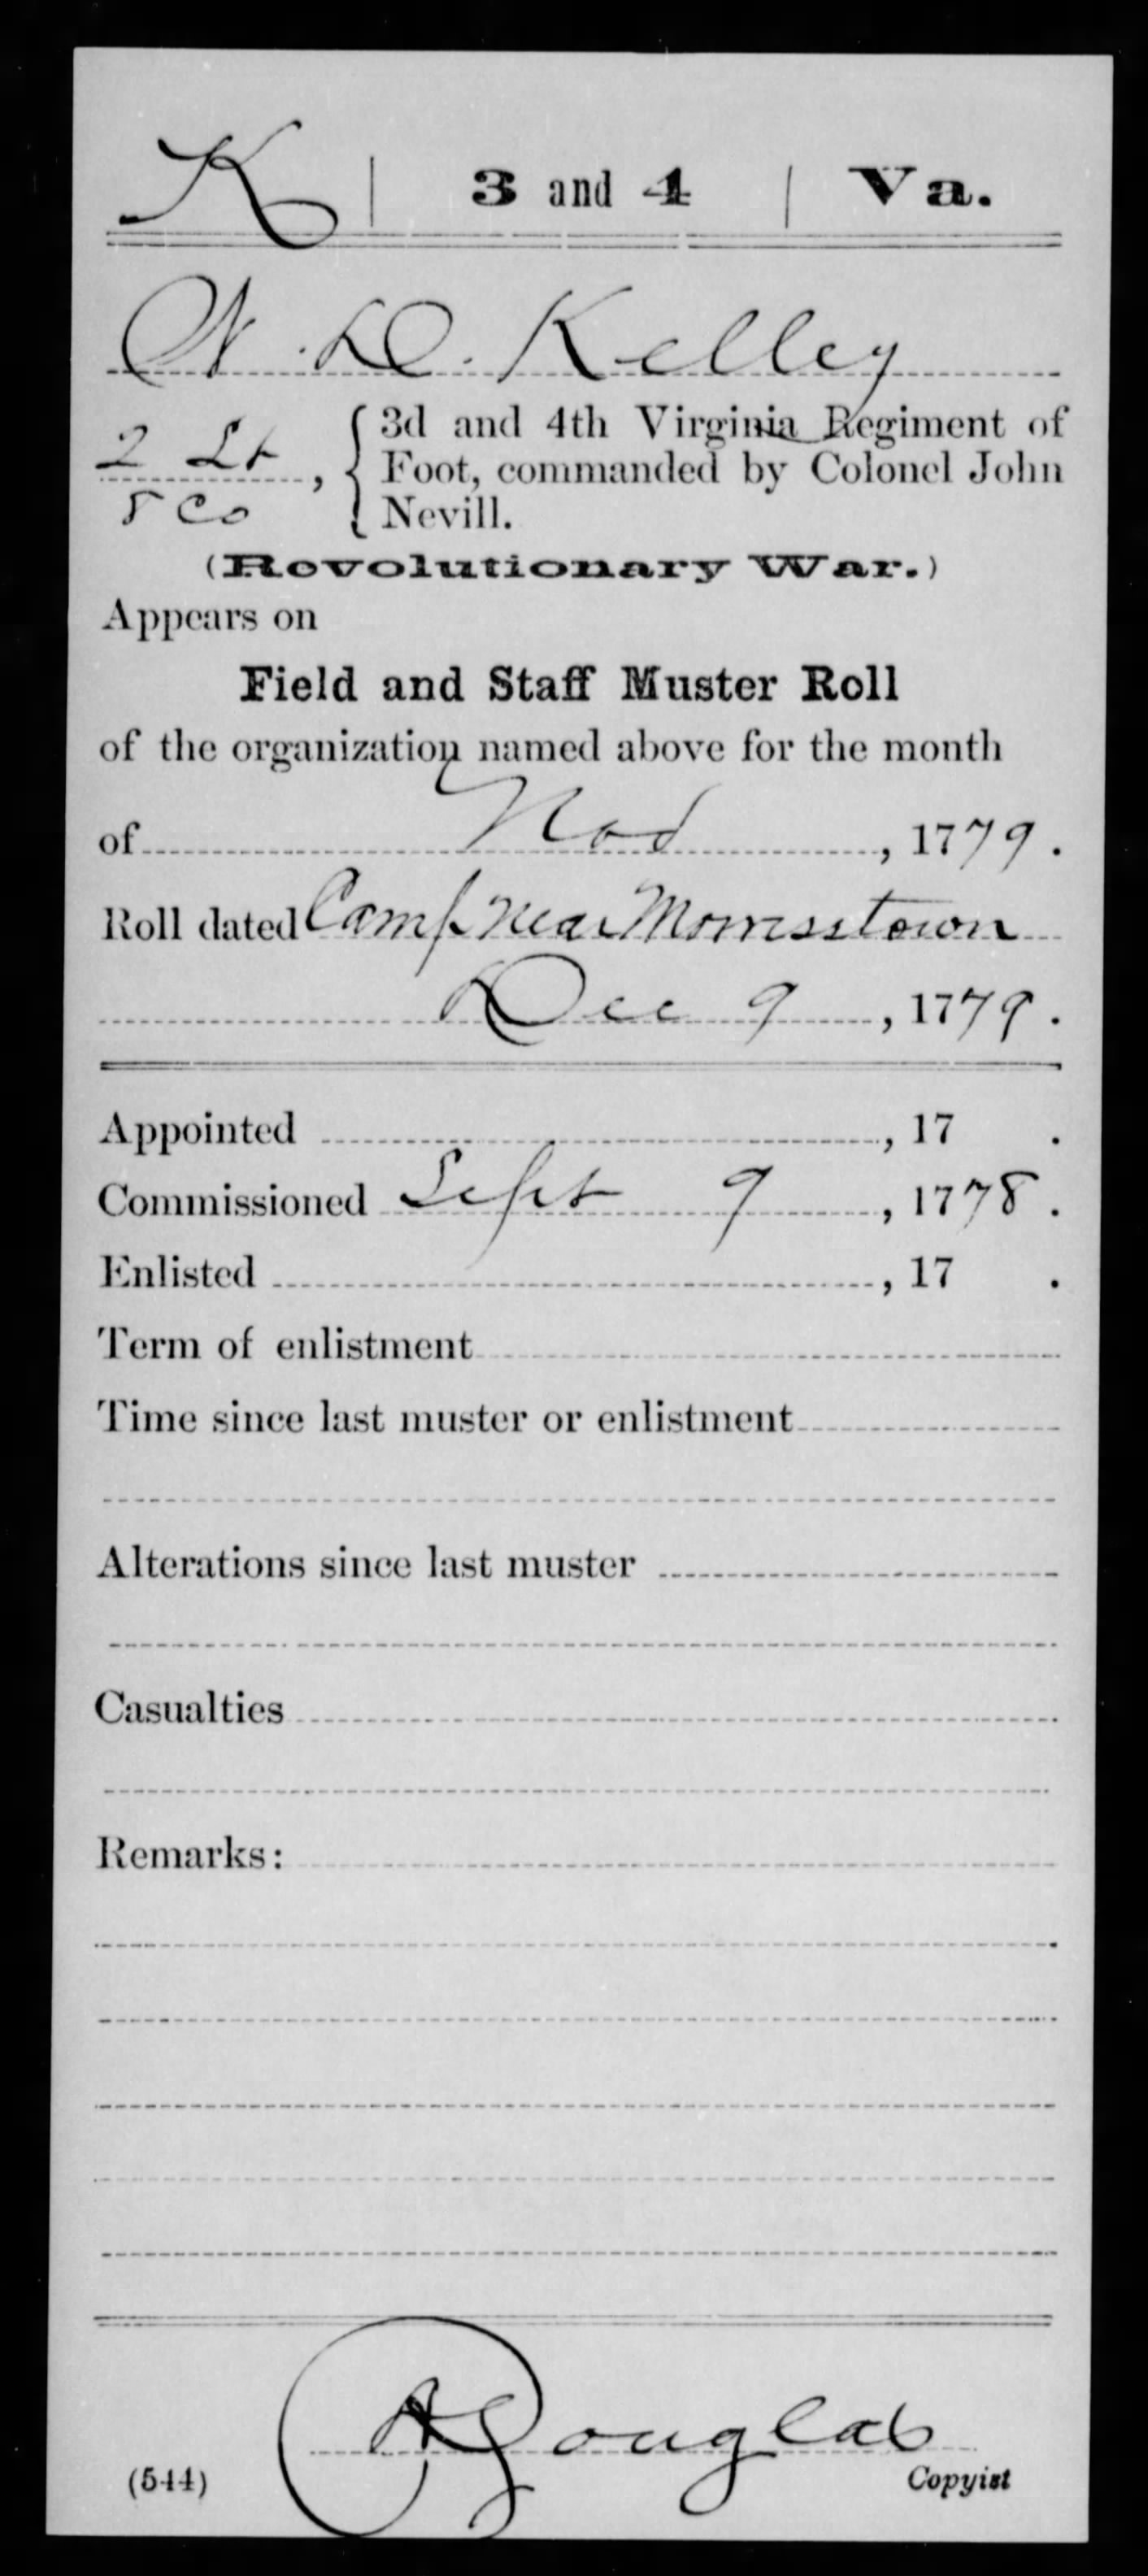 K | 3 and 4 | Va.
W. D. Kelley
2 Lt, { 3d and 4th Virginia Regiment of
8 Co Foot, commanded by Colonel John
Nevill.
(Revolutionary War.)
Appears on
Field and Staff Muster Roll
of the organization named above for the month
of Nov, 1779.
Roll dated Camp near Morrisstown
Dec 9, 1779.
Appointed , 17 .
Commissioned Sept 9, 1778.
Enlisted , 17 .
Term of enlistment
Time since last muster or enlistment
Alterations since last muster
Casualties
Remarks:
A Douglas
(544) Copyist